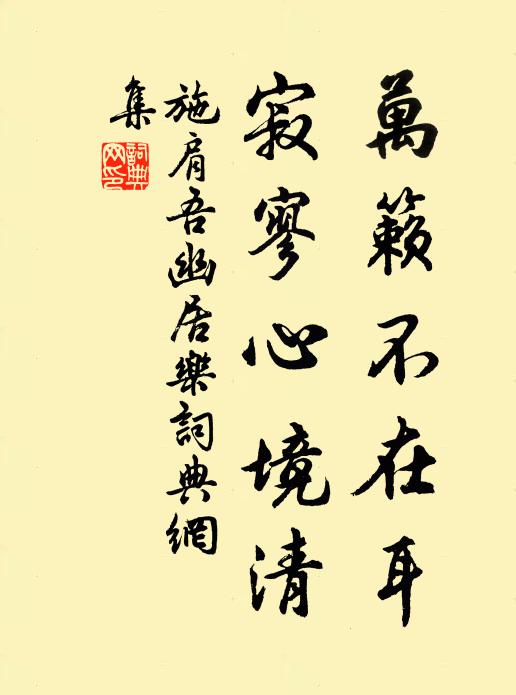 萬籟不在耳
寂寥心境清
施肩吾幽居樂詞典網
集
詞典網印